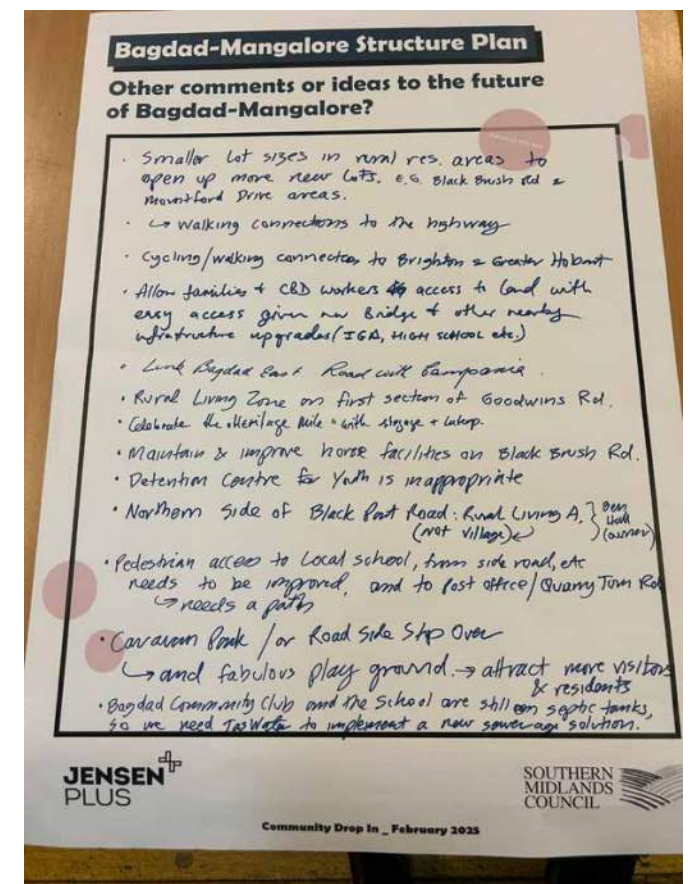 Bagdad-Mangalore Structure Plan
Other comments or ideas to the future
of Bagdad-Mangalore?
· Smaller Lot sizes in rural res. areas to
open up more new Lots. E.G. Black Brush Rd &
Mountford Drive areas.
· ↳ Walking connections to the highway
· Cycling/walking connection to Brighton & Greater Hobart
· Allow families + CBD workers access to land with
easy access given new Bridge + other nearby
infrastructure upgrades (IGA, HIGH SCHOOL etc.)
· Link Bagdad East Road with Campania.
· Rural Living Zone on first section of Goodwins Rd.
· Celebrate the Heritage Mile - with signage + interp.
· Maintain & improve horse facilities on Black Brush Rd.
· Detention Centre for Youth is inappropriate
· Northern Side of Black Port Road: Rural Living A. } Ben
(not village) Hall
(owner)
· Pedestrian access to Local school, from side road, etc
needs to be improved, and to Post office/Quarry Town Rd
↳ needs a path
· Caravan Park / or Road Side Stop Over
↳ and fabulous play ground. → attract more visitors
& residents
· Bagdad Community Club and the School are still on septic tanks,
so we need TasWater to implement a new sewerage solution.
JENSEN
PLUS
SOUTHERN
MIDLANDS
COUNCIL
Community Drop In _ February 2025